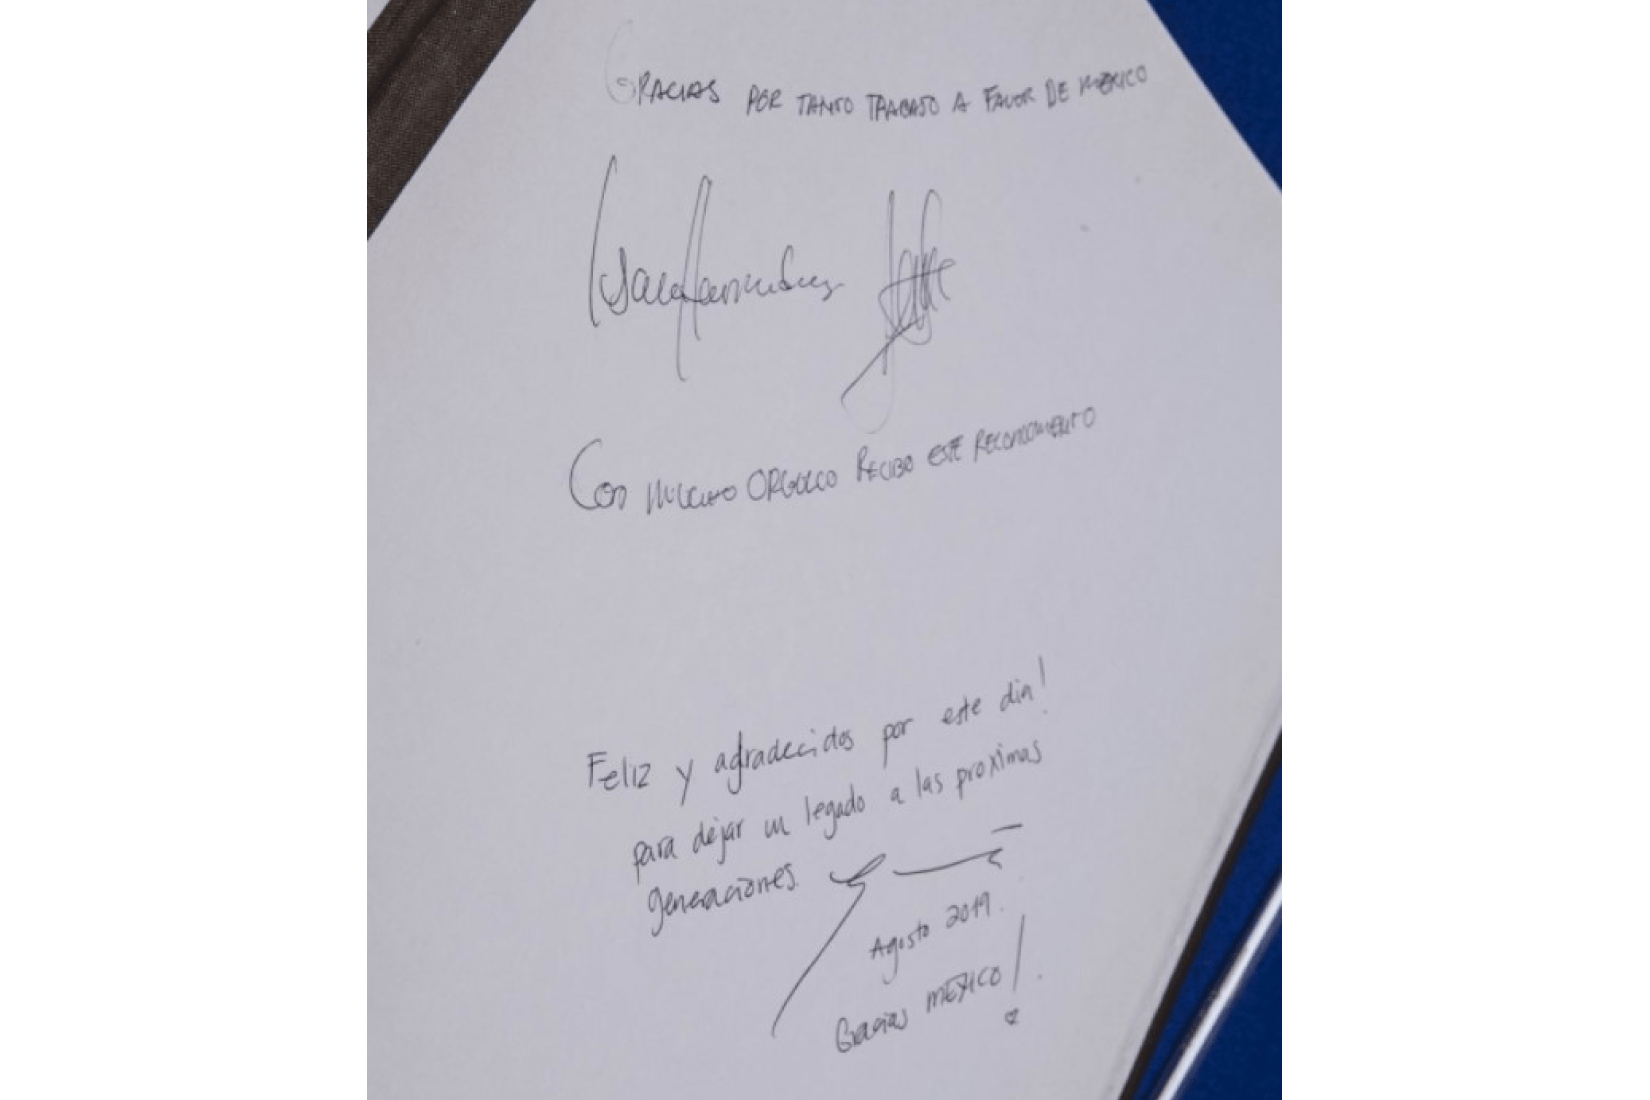 GRACIAS POR TANTO TRABAJO A FAVOR DE MEXICO
CON MUCHO ORGULLO RECIBO ESTE RECONOCIMIENTO
Feliz y agradecidos por este dia!
para dejar un legado a las proximas
generaciones.
Agosto 2019.
Gracias MEXICO!